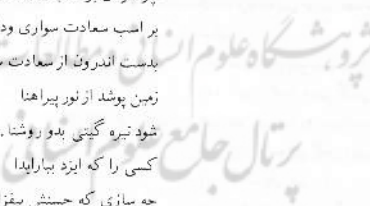 بر اسب سعادت سواری
بدست اندرون از سعادت
زمین پوشد از نور پیراهنا
شود تیره گیتی بدو روشنا
کسی را که ایزد بیارایدا
چه سازی که حسنش
پژوهشگاه علوم انسانی و مطالعات
پرتال جامع علوم انسانی